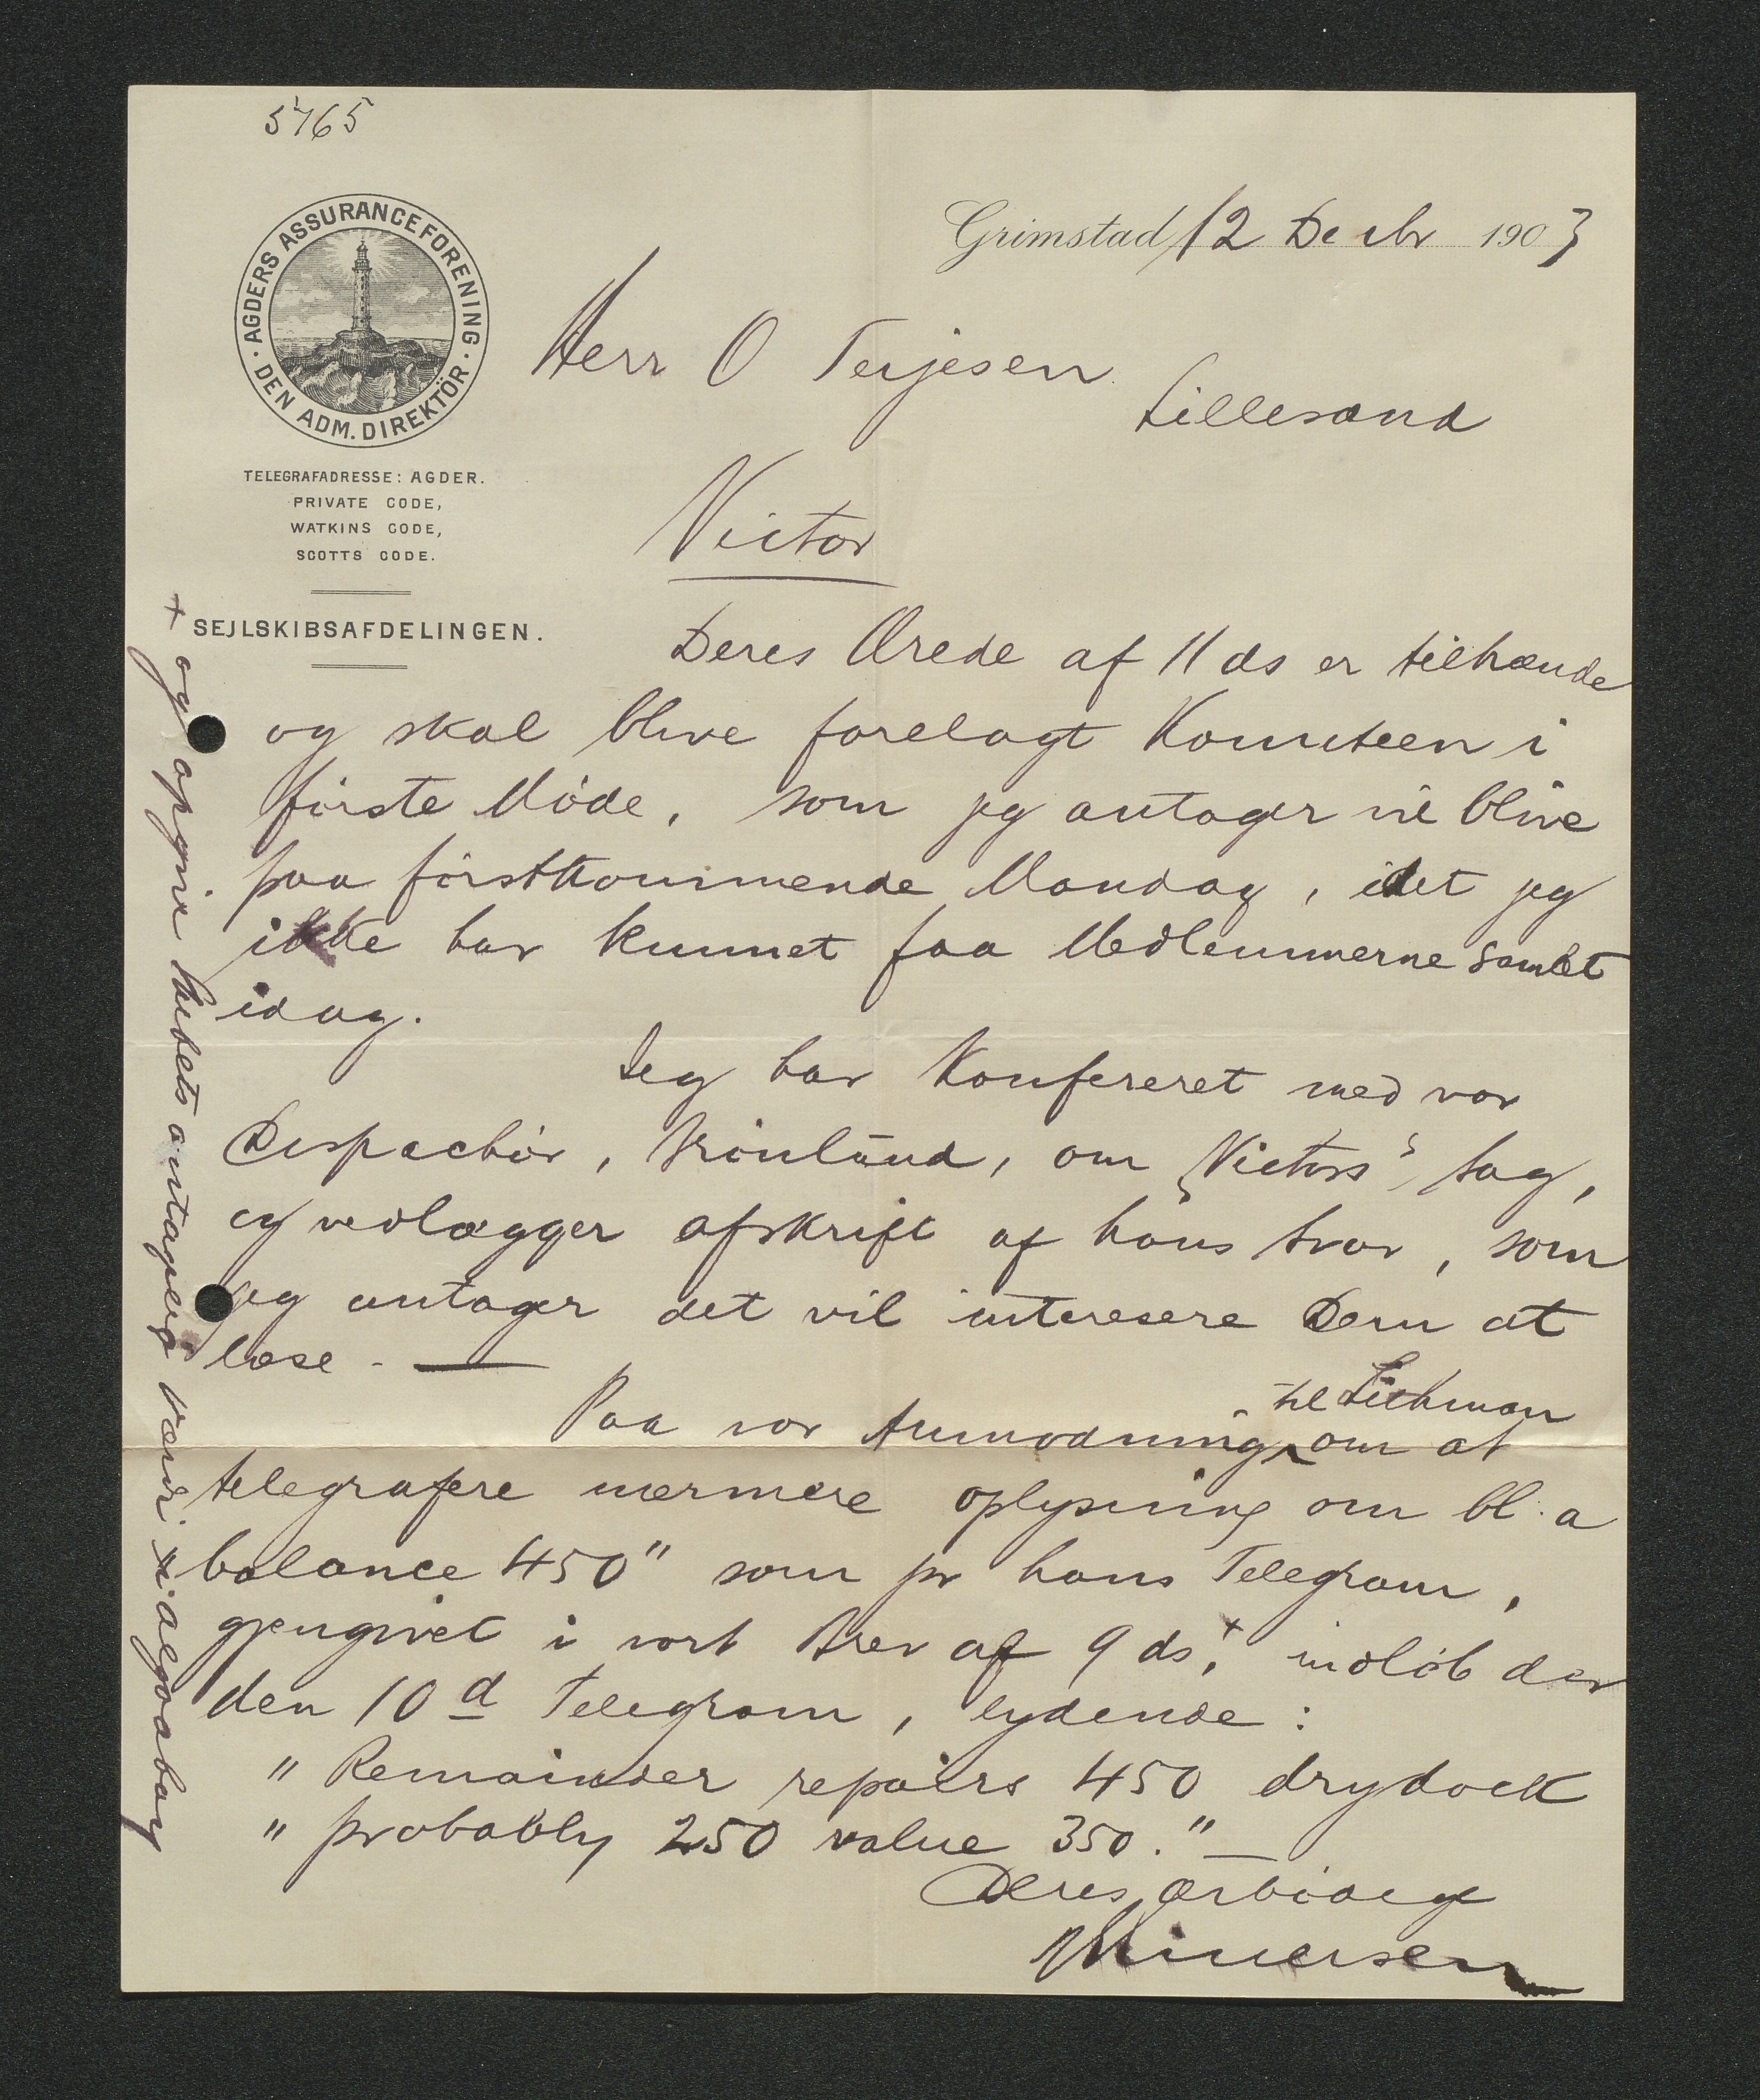 5765
AGDERS ASSURANCEFORENING · DEN ADM. DIREKTÖR ·
TELEGRAFADRESSE: AGDER.
PRIVATE CODE,
WATKINS CODE,
SCOTTS CODE.
SEJLSKIBSAFDELINGEN.
Grimstad, 12 Decbr 1903
Herr O Terjesen
Lillesand
Victor
Deres Ærede af 11 ds er tilhænde
og skal blive forelagt Komiteen i
første Møde, som jeg antager vil blive
paa førstkommende Mandag, idet jeg
ikke har kunnet faa Medlemmerne samlet
idag.
Jeg har Konfereret med vor
Dispachør, Grönlund, om "Victors" sag,
og vedlægger afskrift af hans svar, som
jeg antager det vil interesere Dem at
læse. —
Paa vor Anmodning til Liehman om at
telegrafere nærmere oplysning om bl. a
"balance 450" som pr hans Telegram,
gjengivet i vort Brev af 9 ds,+ indløb der
den 10d Telegram, lydende:
" Remainder repairs 450 drydock
" probably 250 value 350." —
Deres ærbødig
+ og opgive skibets antagelige værdi i algoabay